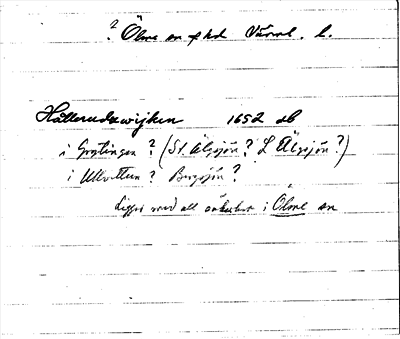 ? Ölme sn o hd Värml. l.
Hällerudzwijken 1652 jb
i Grytingen? (St. Älgsjön? L Älgsjön?)
i Ullvettern? Bergsjön?
Ligger med all säkerhet i Ölme sn